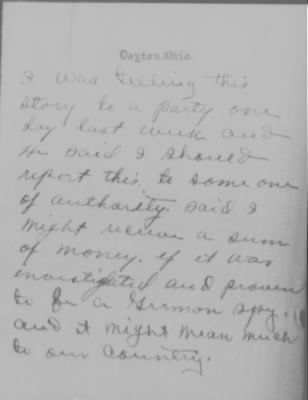 Dayton, Ohio.
I was telling this
story to a party one
day last week and
He said I should
report this to some one
of authority. Said I
might receive a sum
of money. if it was
investigated and proven
to be a German spy.
and it might mean much
to our country.